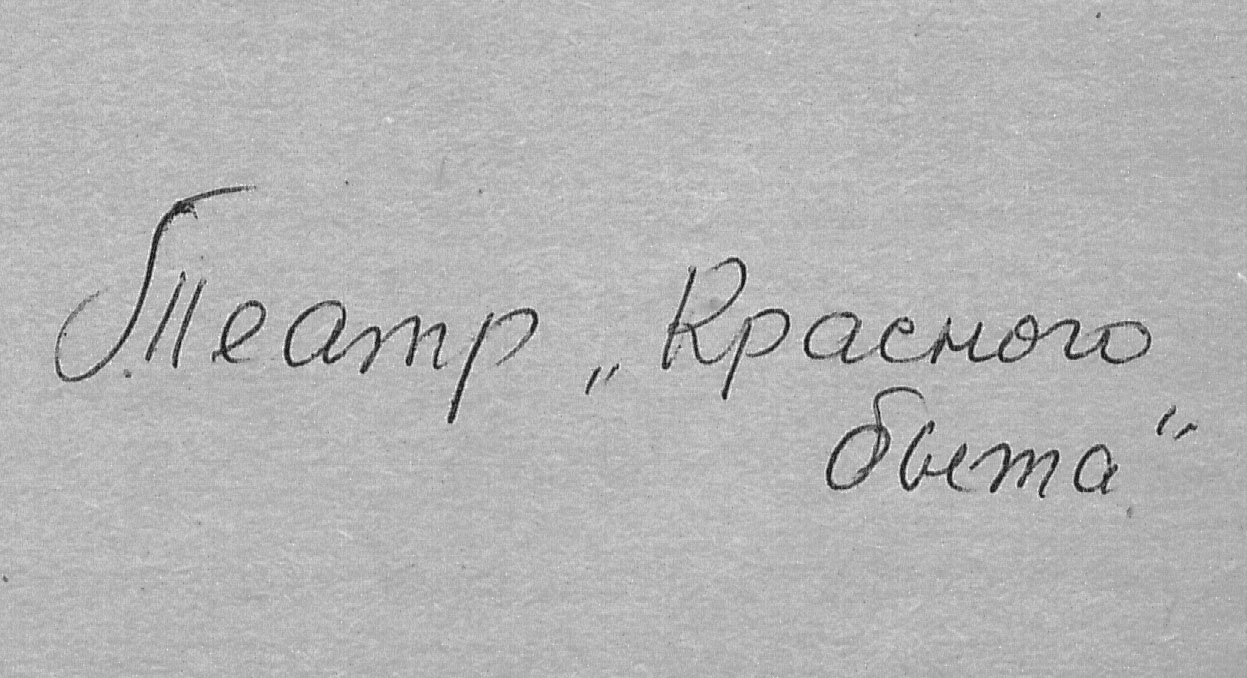 Театр „Красного
быта"